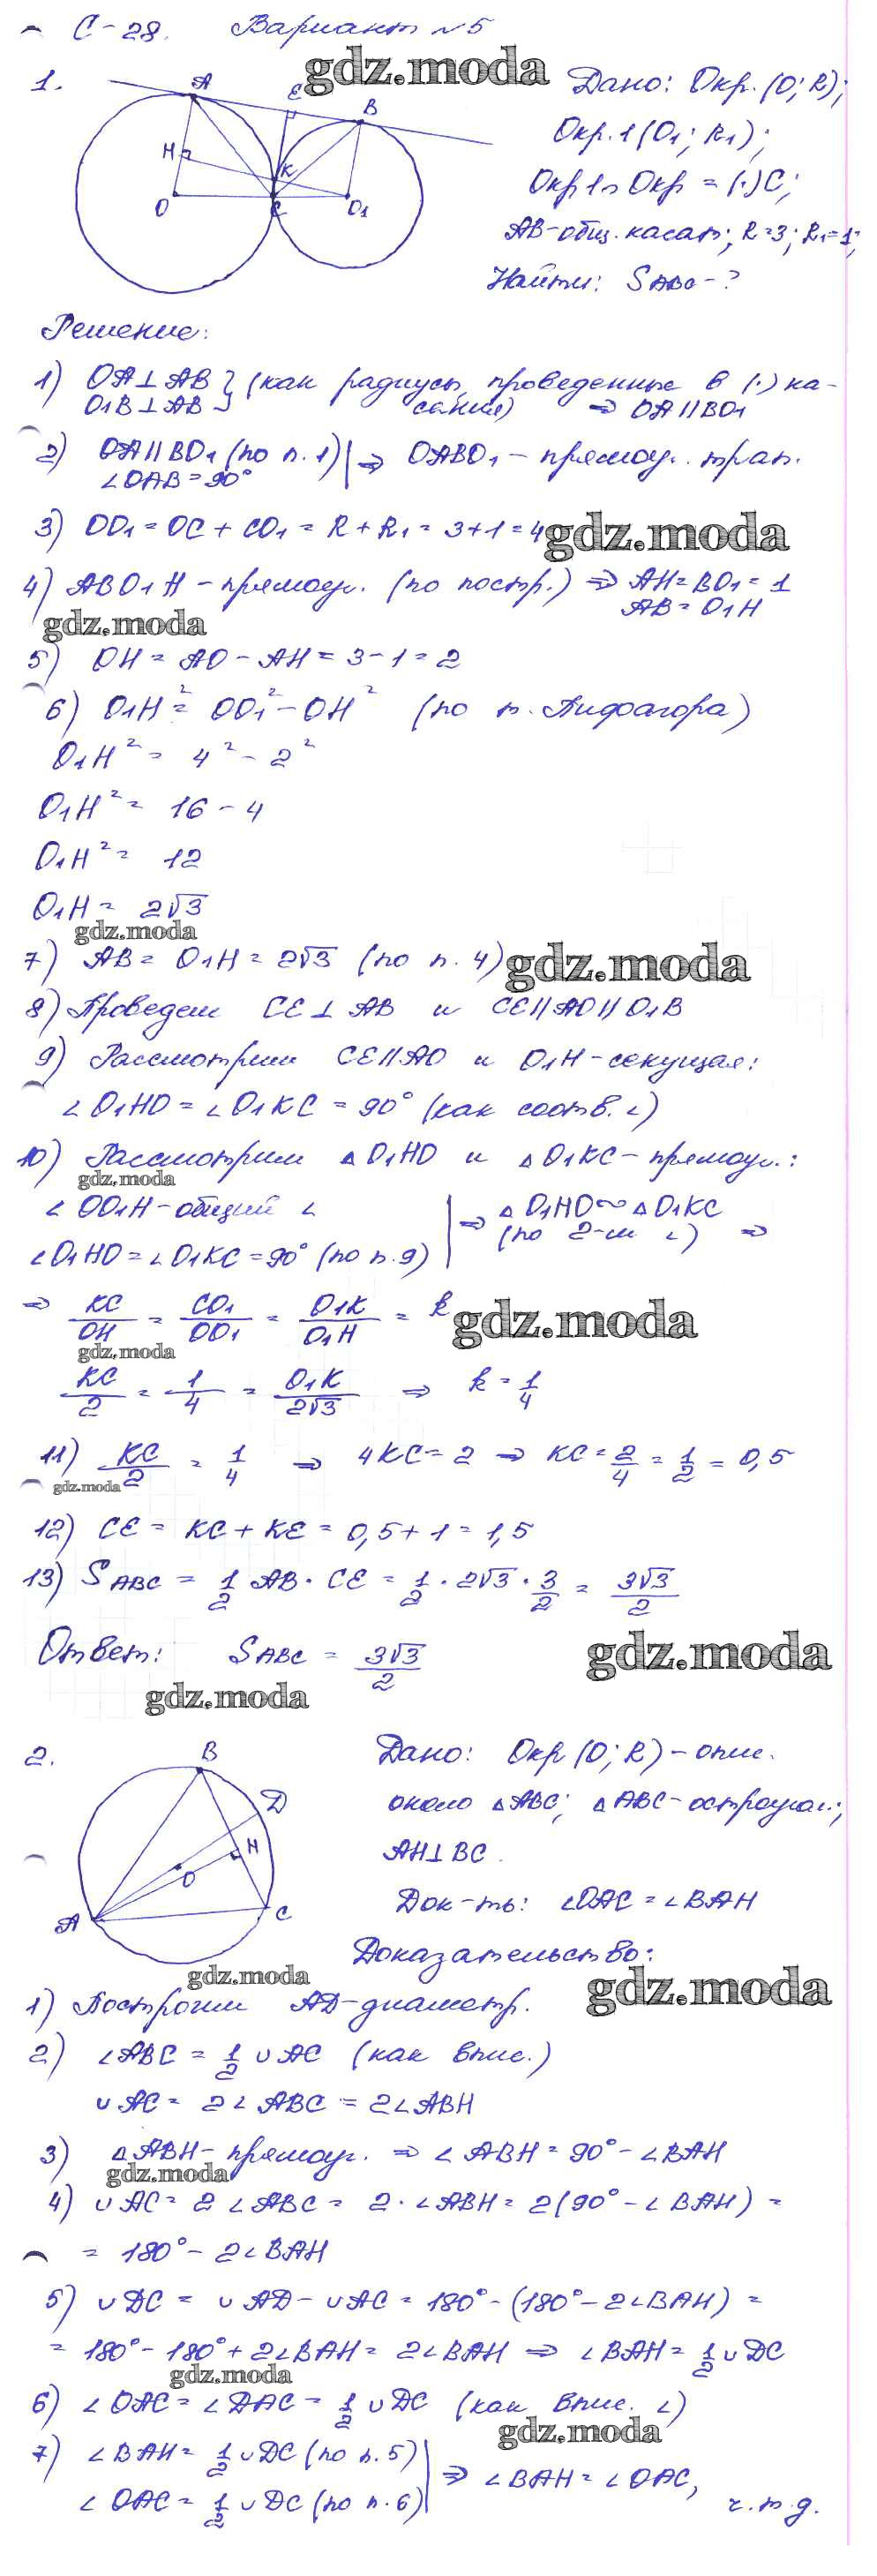 С-28. Вариант №5
gdz.moda
1.
A
E
B
H
K
O
C
O₁
Дано: Окр. (O; R);
Окр.1 (O₁; R₁);
Окр1∩Окр = (·)C;
AB-общ. касат; R=3; R₁=1;
Найти: SABC-?
Решение:
1) OA⊥AB } (как радиусы, проведенные в (·) ка-
O₁B⊥AB сания) ⇒ OA||BO₁
2) OA||BO₁ (по п. 1) | ⇒ OABO₁ - прямоуг. трап.
∠OAB=90°
3) OO₁ = OC + CO₁ = R + R₁ = 3+1 = 4
gdz.moda
4) ABO₁H - прямоуг. (по постр.) ⇒ AH=BO₁=1
AB=O₁H
gdz.moda
5) OH = AO - AH = 3-1 = 2
6) O₁H² = OO₁² - OH² (по т. Пифагора)
O₁H² = 4² - 2²
O₁H² = 16 - 4
O₁H² = 12
O₁H = 2√3
gdz.moda
7) AB = O₁H = 2√3 (по п. 4)
gdz.moda
8) Проведем CE⊥AB и CE||AO||O₁B
9) Рассмотрим CE||AO и O₁H-секущая:
∠O₁HO = ∠O₁KC = 90° (как соотв. ∠)
10) Рассмотрим △O₁HO и △O₁KC - прямоуг.:
gdz.moda
∠OO₁H-общий ∠ | ⇒ △O₁HO ~ △O₁KC
∠O₁HO = ∠O₁KC = 90° (по п. 9) (по 2-м ∠) ⇒
⇒ KC/OH = CO₁/OO₁ = O₁K/O₁H = k
gdz.moda
gdz.moda
KC/2 = 1/4 = O₁K/2√3 ⇒ k = 1/4
11) KC/2 = 1/4 ⇒ 4KC = 2 ⇒ KC = 2/4 = 1/2 = 0,5
gdz.moda
12) CE = KC + KE = 0,5 + 1 = 1,5
13) SABC = 1/2 AB · CE = 1/2 · 2√3 · 3/2 = 3√3/2
Ответ: SABC = 3√3/2
gdz.moda
gdz.moda
2.
B
D
H
O
A
C
Дано: Окр (O; R) - опис.
около △ABC; △ABC-остроугол.;
AH⊥BC.
Док-ть: ∠OAC = ∠BAH
Доказательство:
gdz.moda
gdz.moda
1) Построим AD-диаметр.
2) ∠ABC = 1/2 ∪AC (как впис.)
∪AC = 2∠ABC = 2∠ABH
3) △ABH - прямоуг. ⇒ ∠ABH = 90° - ∠BAH
gdz.moda
4) ∪AC = 2∠ABC = 2·∠ABH = 2(90° - ∠BAH) =
= 180° - 2∠BAH
5) ∪DC = ∪AD - ∪AC = 180° - (180° - 2∠BAH) =
= 180° - 180° + 2∠BAH = 2∠BAH ⇒ ∠BAH = 1/2 ∪DC
gdz.moda
6) ∠OAC = ∠DAC = 1/2 ∪DC (как впис. ∠)
gdz.moda
7) ∠BAH = 1/2 ∪DC (по п. 5) | ⇒ ∠BAH = ∠OAC,
∠OAC = 1/2 ∪DC (по п. 6) ч.т.д.